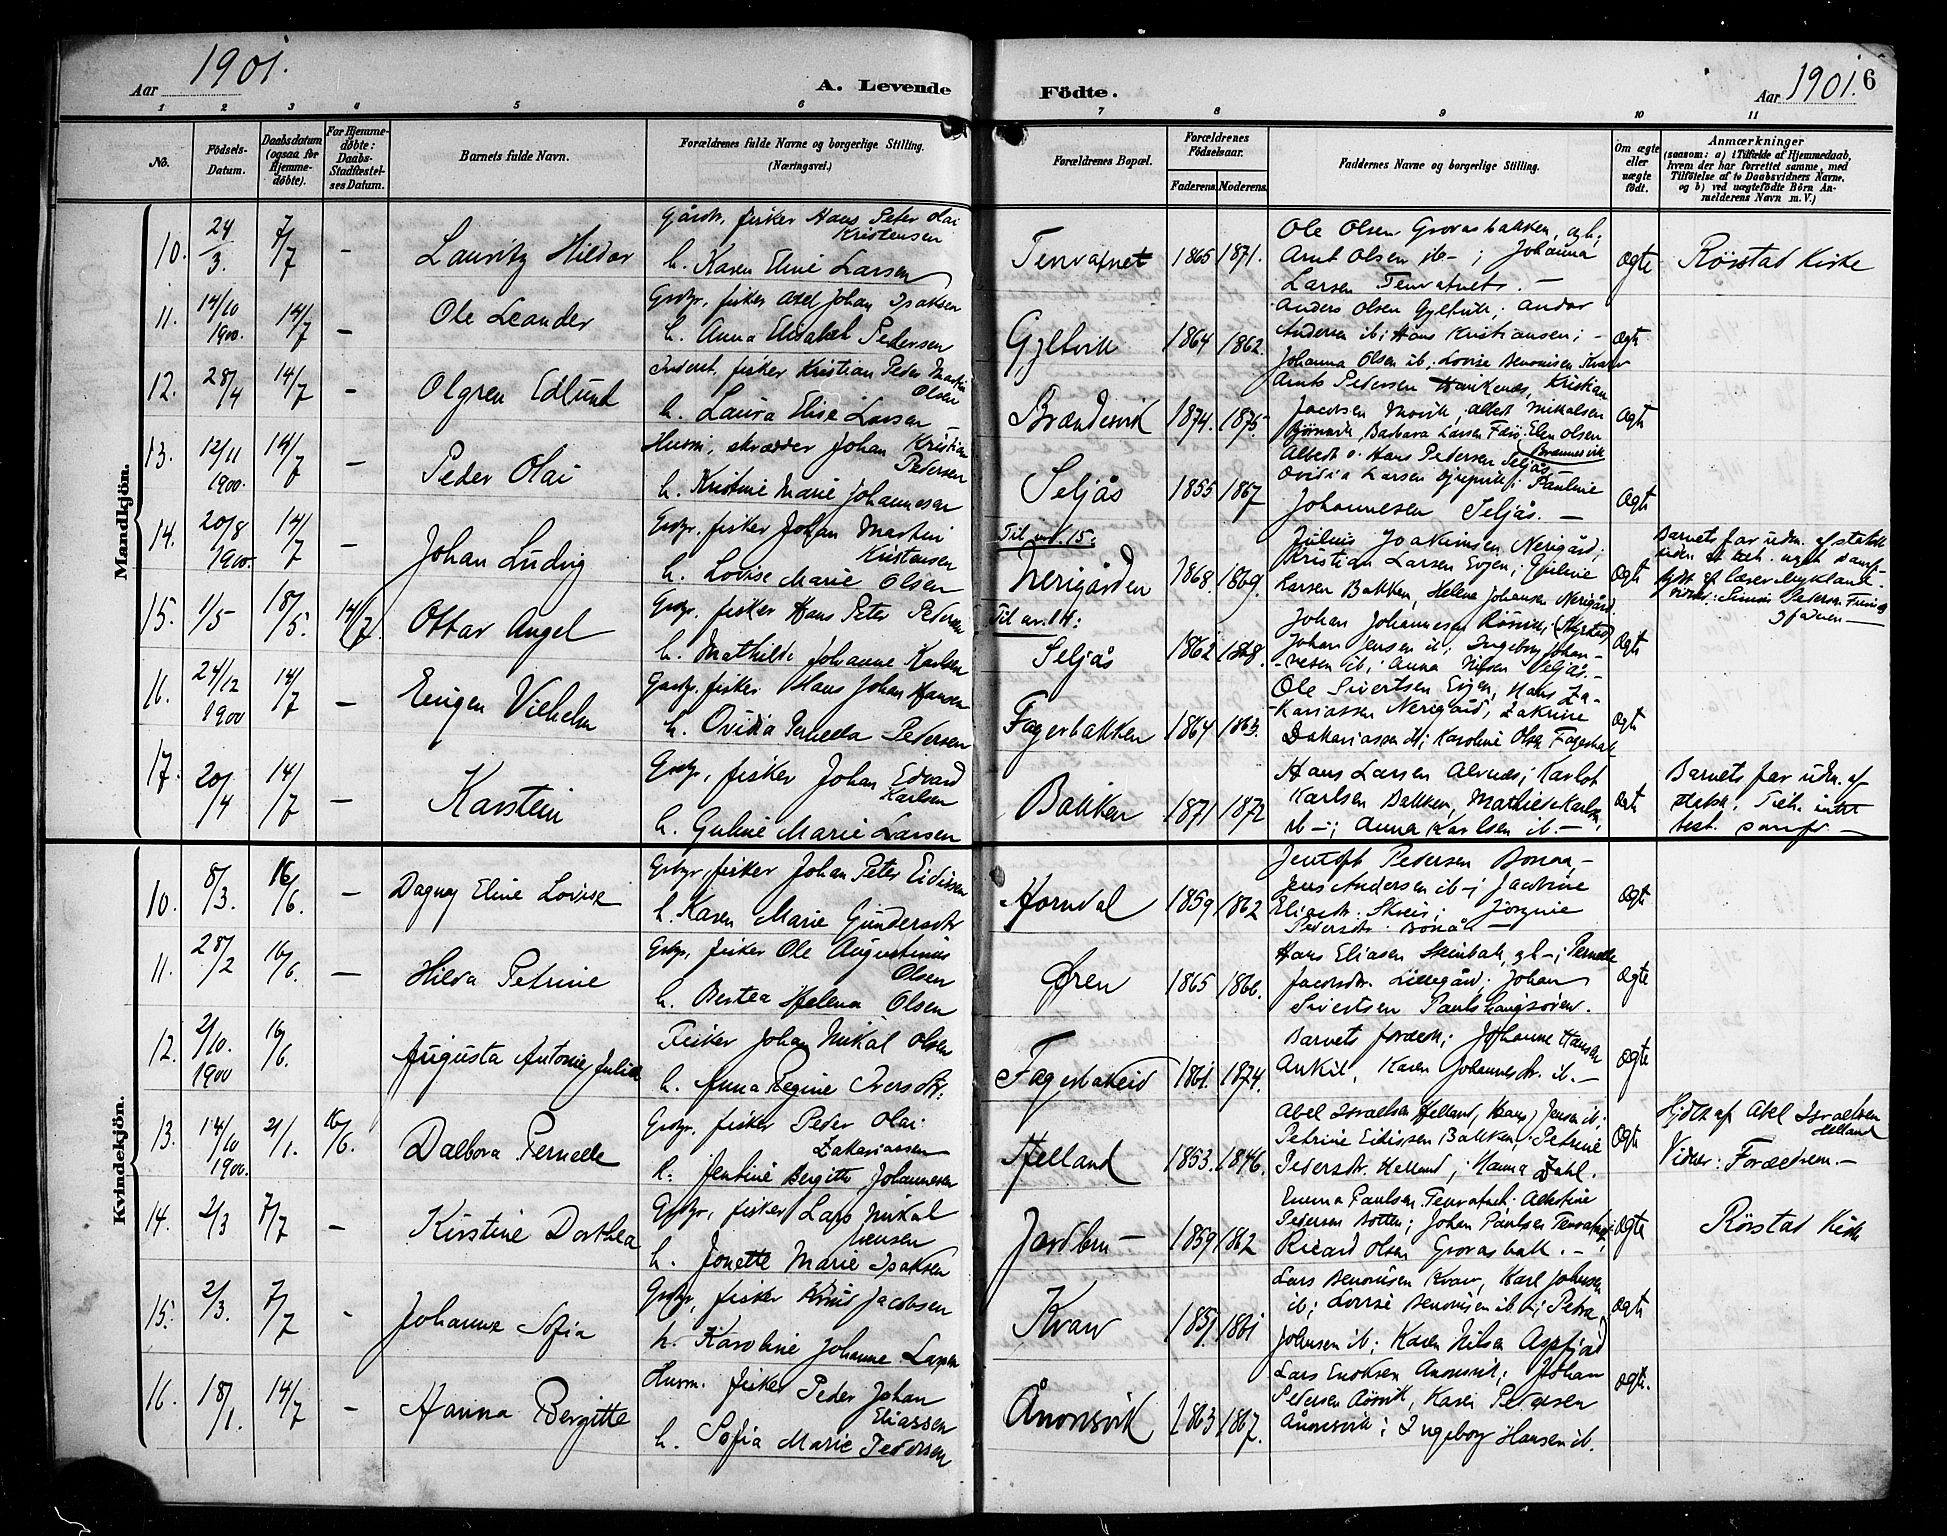 Aar 1901.
A. Levende
1 2 3 4 5 6
No.
Födsels-Datum.
Daabsdatum (ogsaa for Hjemme-døbte).
For Hjemme-døbte: Daabs-Stadfæstel-ses Datum.
Barnets fulde Navn.
Forældrenes fulde Navne og borgerlige Stilling. (Næringsvei.)
Födte.
Aar 1901. 6
7 8 9 10 11
Forældrenes Bopæl.
Forældrenes Födselsaar.
Faderens. Moderens.
Faddernes Navne og borgerlige Stilling.
Om ægte eller uægte födt.
Anmærkninger
(saasom: a) i Tilfælde af Hjemmedaab,
hvem der har forrettet samme, med
Tilföielse af to Daabsvidners Navne,
og b) ved uægtefödte Börn An-
melderens Navn m. V.)
Mandkjön.
10. 24/3. 7/7 – Lauritz Hildor
Gårdbr, fisker Hans Peter Olai
Kristensen
h. Karen Eline Larsen
Tenvatnet 1865 1871.
Ole Olsen Grovasbakken,
Arnt Olsen ib–; Johanna
Larsen Tenvatnet. –
ægte
Rørstad Kirke
11. 14/10 1900. 14/7 – Ole Leander
Grdbr, fisker Axel Johan Isaksen
h. Anna Elisabet Pedersen
Gyltvik 1864 1862.
Anders Olsen Gyltvik; Andor
Andersen ib; Hans Kristiansen; –
Johanna Olsen ib; Lovise Benonisen Kvarv
ægte
12. 28/4 14/7 – Olgren Edlund
Inderst, fisker Kristian Peder Martin
Olsen
h. Laura Elise Larsen
Brændesvik 1874. 1875.
Arnts Pedersen Haukenæs, Kristian
Jacobsen Movik; Albert Mikalsen
Bjørnvik, Barbara Larsen Færø; Elen Olsen
Brænnesvik
ægte
13. 12/11 1900. 14/7 – Peder Olai
Husm, skrædder Johan Kristian
Pedersen
h. Kristine Marie Johannesen
Seljås 1855 1867
Albert o. Hans Pedersen Seljås
Ovidia Larsen; Pauline
Johannesen Seljås. –
ægte
14. 20/8 1900. 14/7 – Johan Ludvig
Grdbr. fisker Johan Martin
Kristensen
h. Lovise Marie Olsen
Til nr. 15:
Nerigården 1868. 1869.
Julius Joakimsen Nerigård;
Kristian Larsen Evjen; Guline
Larsen Bakken, Helene Johansen Nerigård
ægte
Barnets far udm. af statsk
15. 1/5 18/5. 14/7 Ottar Angel
Grdbr. fisker Hans Peter Pedersen
h. Mathilde Johanne Karlsen
Til nr. 14:
Seljås 1862 1868.
Johan Johannesen Rönvik, (Myrstad)
Johan Jensen ib; Ingeborg Johan-
nesen ib; Anna Nilsen Seljås. –
ægte
16. 24/12 1900 14/7 – Eugen Vilhelm
Grdbr. fisker Hans Johan Hansen
h. Ovidia Pernella Pedersen
Fagerbakken 1864 1863.
Ole Sivertsen Evjen, Hans Za-
kariassen Nerigård, Zakrine
Zakariassen ib; Karoline Olsen Fagerbak
ægte
17. 20/4 14/7 – Karstein
Grdbr, fisker Johan Edvard
Karlsen
h. Guline Marie Larsen
Bakken 1871 1872
Hans Larsen Alvnes; Karlot
Karlsen Bakken, Mathie Karlsen
ib –; Anna Karlsen ib –
ægte
Barnets far udm. af
statsk. Tilh. intet
best. samf –
Kvindekjön.
10. 8/3. 16/6. – Dagny Eline Lovise
Grdbr, fisker Johan Peter Eidissen
h. Karen Marie Gundersdtr
Horndal 1859 1862
Jentoft Pedersen Bonåa, –
Jens Andersen ib –; Jacobine
Eliasdtr. Skreis; Jörgine
Pedersdtr. Bonå –
ægte
11. 28/2 16/6. – Hilda Petrine
Grdbr, fisker Ole Augustinus
Olsen
h. Bertea Helena Olsen
Ören 1865 1866.
Hans Eliasen Steinbak, gb –; Pernelle
Jacobsdtr. Lillegård; Johan
Sivertsen Paulshaugsören.
ægte
12. 2/10. 1900 16/6. Augusta Antonie Julie
Fisker Johan Mikal Olsen
h. Anna Regine Iversdtr.
Fagerbakeid 1861. 1874.
Barnets foræld; Johanne Hansen
Ankil, Karen Johannesdtr. ib. –
ægte
13. 14/10 1900. 21/1. 16/6. Dalbora Pernelle
Grdbr. fisker Peder Olai
Zakariassen
h. Jentine Bergitte Johannesen
Helland 1853. 1846.
Abel Israelsen Helland, Hans Jensen ib;
Petrine Eidissen Bakken; Petrine
Pedersdtr. Helland; Hanna Zahl.
ægte
Hjdtd af Abel Israelsen
Helland
Vidner: Forældrene. –
14. 2/3 7/7 – Kirstine Dorthea
Grdbr, fisker Lars Mikal
Larsen
h. Jonette Marie Isaksen
Jordbru – 1859 1862
Emma Paulsen Tenvatnet; Albertine
Pedersen Botten; Johan Paulsen Tenvatnet;
Ricard Olsen Grovasbakk. –
ægte
Rørstad Kirke
15. 2/3. 7/7 – Johanne Sofia
Grdbr, fisker Knut Jacobsen
h. Karoline Johanne Larsen
Kvarv 1851 1861
Lars Benonisen Kvarv, Karl Johnsen
ib; Lovise Benonisen ib; Petra
Johnsen ib; Karen Nilsen Aspfjord
ægte
16. 18/1. 14/7 – Hanna Bergitte
Husm. fisker Peder Johan
Eliassen
h. Sofia Marie Pedersen
Ånonsvik 1863 1867.
Lars Enoksen Anonsvik; Johan
Pedersen Aasvik, Karen Petersen
Ånonsvik; Ingeborg Hansen ib.
ægte.